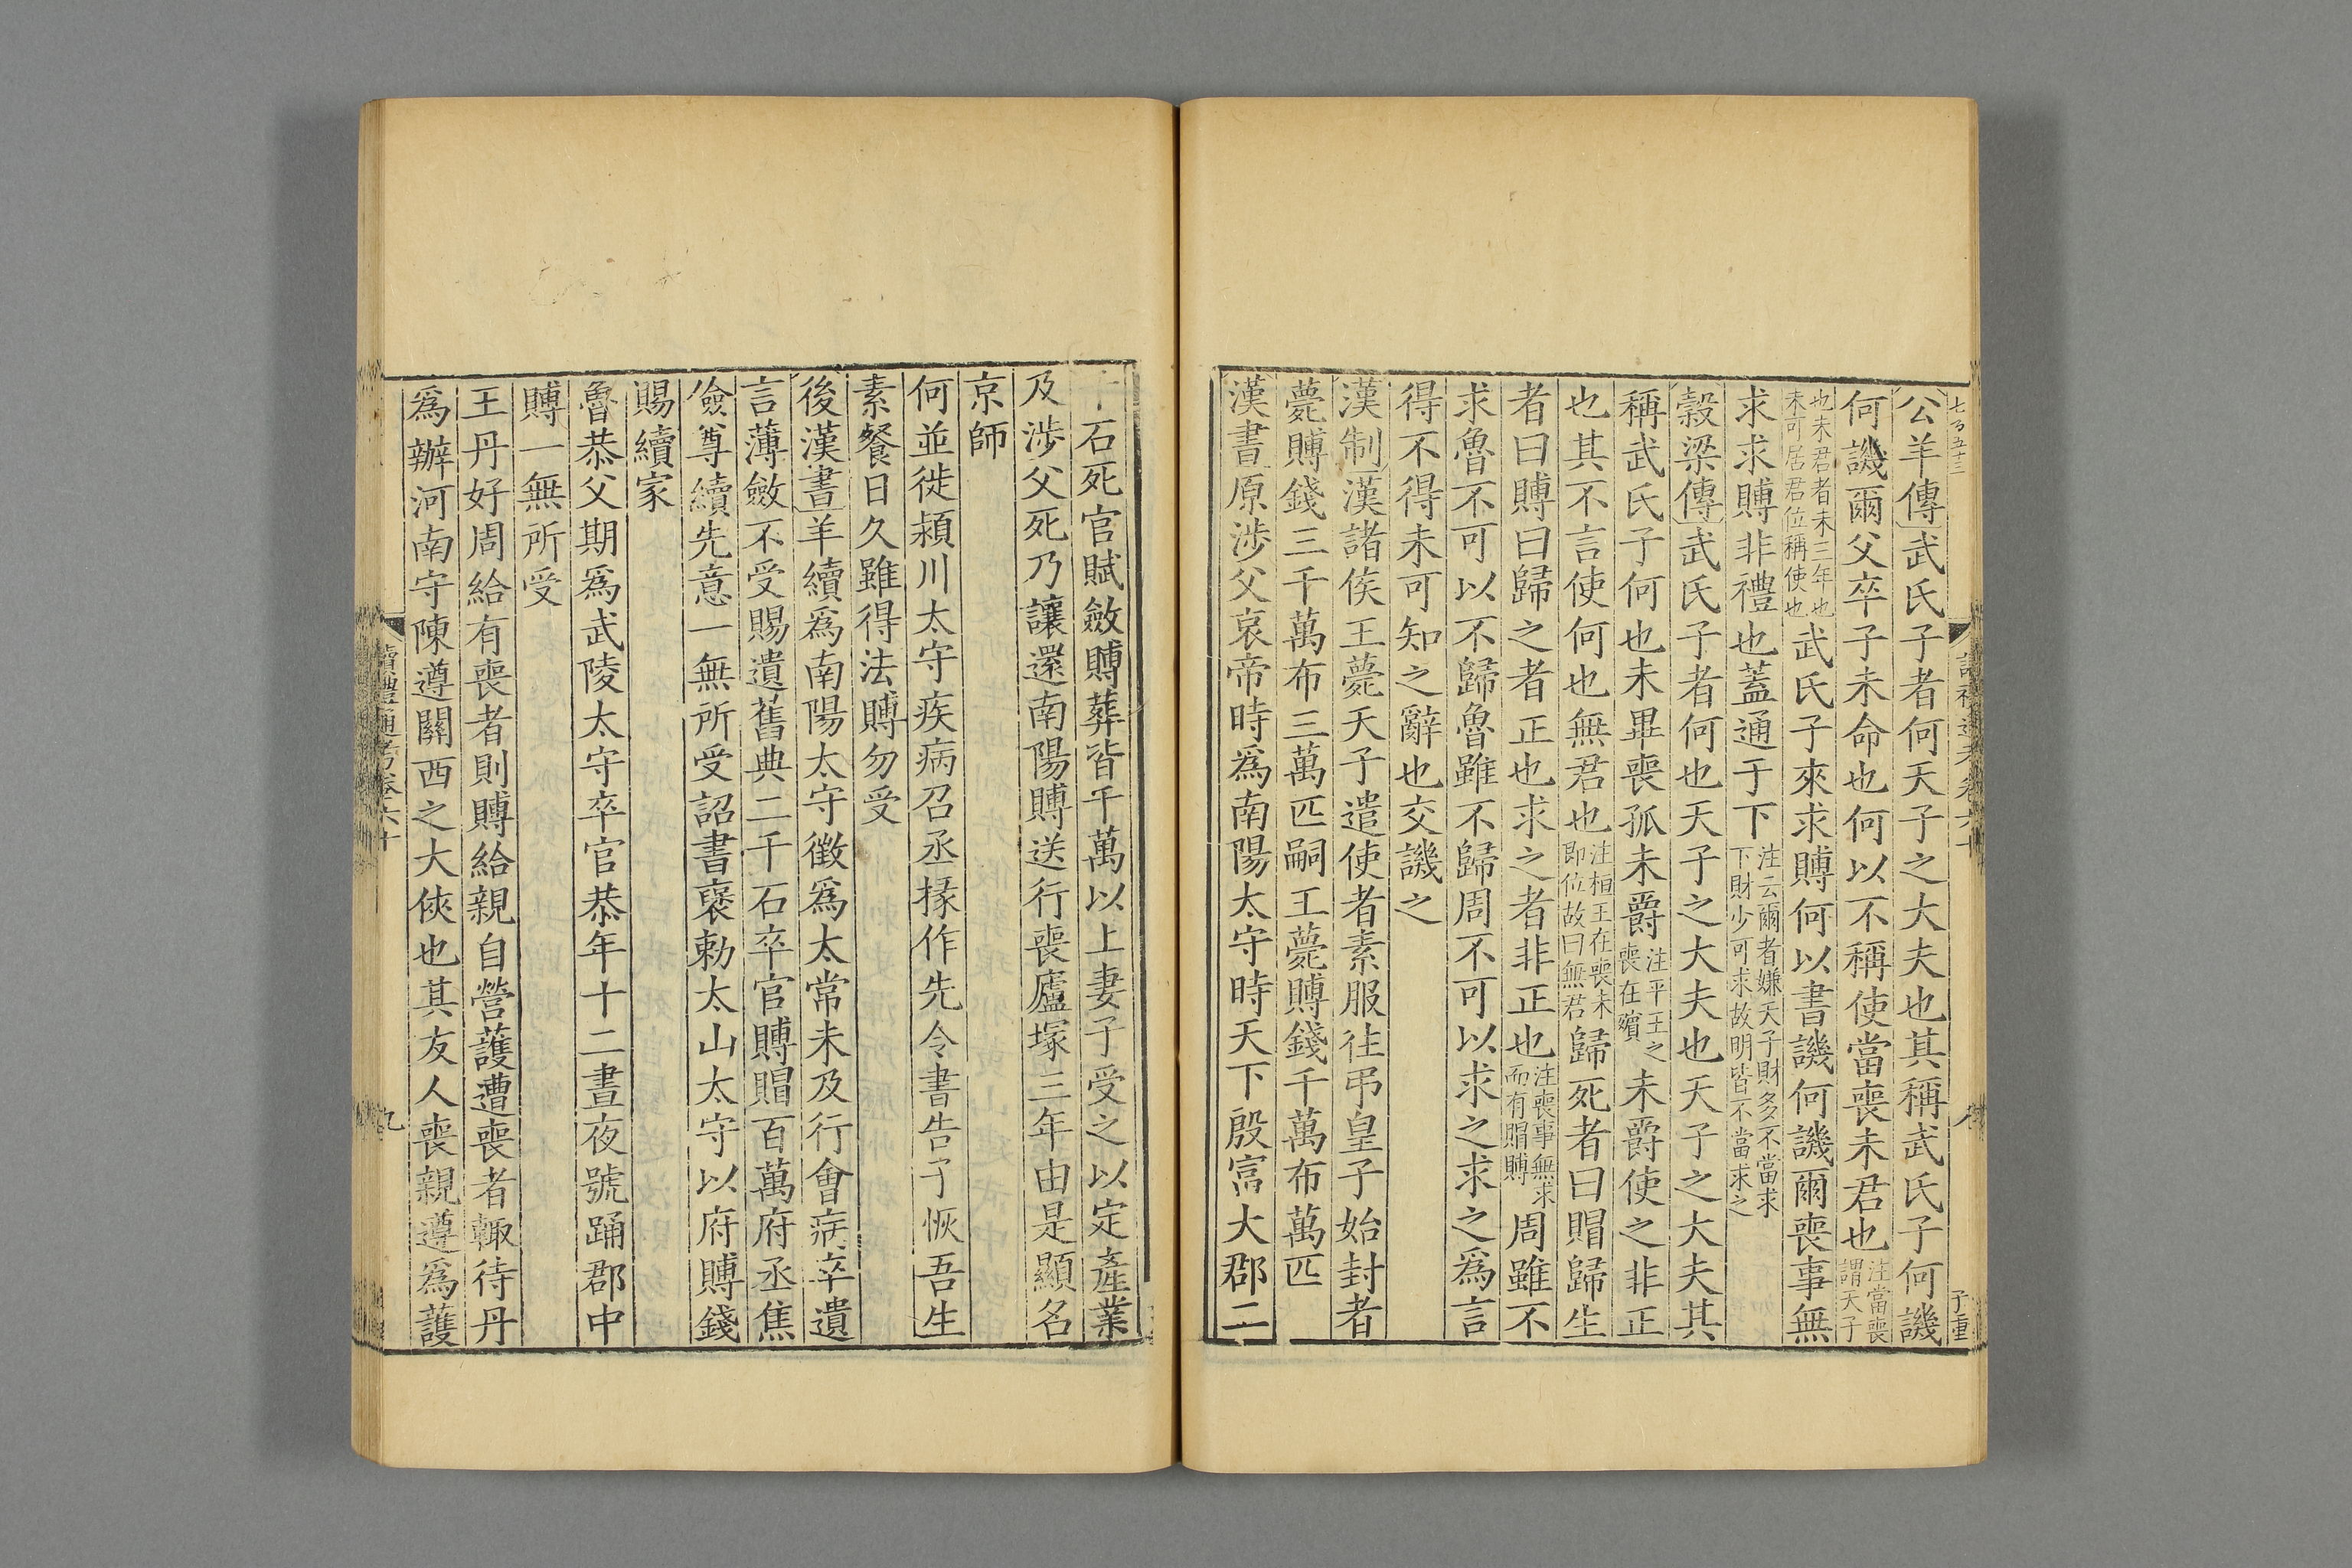 公羊傳武氏子者何天子之大夫也其稱武氏子何譏
何譏爾父卒子未命也何以不稱使當喪未君也注當喪謂天子
也未君者未三年也未可居君位稱使也武氏子來求賻何以書譏何譏爾喪事無
求求賻非禮也蓋通于下注云爾者嫌天子財多不當求下財少可求故明皆不當求之
穀梁傳武氏子者何也天子之大夫也天子之大夫其
稱武氏子何也未畢喪孤未爵注平王之喪在殯未爵使之非正
也其不言使何也無君也注桓王在喪未即位故曰無君歸死者曰賵歸生
者曰賻曰歸之者正也求之者非正也注喪事無求而有賵賻周雖不
求魯不可以不歸魯雖不歸周不可以求之求之爲言
得不得未可知之辭也交譏之
漢制漢諸侯王薨天子遣使者素服往弔皇子始封者
薨賻錢三千萬布三萬匹嗣王薨賻錢千萬布萬匹
漢書原涉父哀帝時爲南陽太守時天下殷富大郡二
石死官賦斂賻葬皆千萬以上妻子受之以定產業
及涉父死乃讓還南陽賻送行喪廬塚三年由是顯名
京師
何並徙潁川太守疾病召丞掾作先令書告子恢吾生
素餐日久雖得法賻勿受
後漢書羊續爲南陽太守徵爲太常未及行會病卒遺
言薄斂不受賜遺舊典二千石卒官賻賵百萬府丞焦
儉尊續先意一無所受詔書褒勅太山太守以府賻錢
賜續家
魯恭父期爲武陵太守卒官恭年十二晝夜號踊郡中
賻一無所受
王丹好周給有喪者則賻給親自營護遭喪者輒待丹
爲辦河南守陳遵關西之大俠也其友人喪親遵爲護
讀禮通考卷六十
九